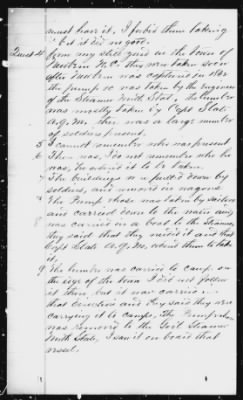 must hear it, I forbid them taking
it but it did no good.
Quest 4. From my still yard in the town of
Newbern N.C. they were taken soon
after Newbern was captured in 1862
the pump was taken by the engineer
of the Steamer North State, the lumber
was mostly taken by Capt Slate
A.Q.M. there was a large number
of soldiers present.
5 I cannot remember who was present
6 There was, I do not remember who he
was, he ordered it to be taken.
7 The buildings was pulled down by
soldiers, and removed in wagons
The Pump & hose was taken by sailors
and carried down to the river and
8 was carried in a boat to the Steamer
they said that they needed it and that
Capt Slate A.Q.M. ordered them to take
it.
9 The lumber was carried to camp on
the edge of the town I did not follow
it there but it was carried in
that direction and they said they were
carrying it to camp, The Pump & hose
was removed to the Govt Steamer
North State, I saw it on board that
vessel.